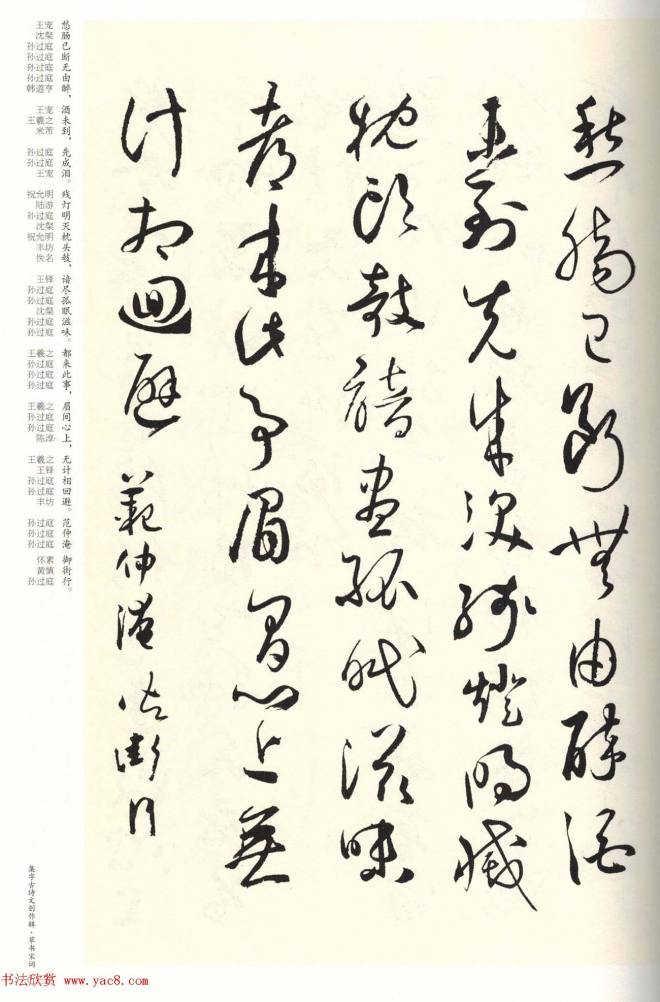 愁腸已斷無由醉酒
未到先成淚殘燈明滅
枕頭攲諳盡孤眠滋味
都來此事眉間心上無
計相迴避 範仲淹 御街行
愁肠已断无由醉，酒未到，先成泪。残灯明灭枕头攲，谙尽孤眠滋味。都来此事，眉间心上，无计相回避。范仲淹 御街行。
王宠
沈粲
孙过庭
孙过庭
孙过庭
孙过庭
韩道亨
王宠
王羲之
米芾
孙过庭
孙过庭
王宠
祝允明
陆游
孙过庭
沈粲
祝允明
丰坊
佚名
王铎
孙过庭
孙过庭
沈粲
孙过庭
孙过庭
王羲之
孙过庭
孙过庭
孙过庭
王羲之
孙过庭
孙过庭
陈淳
王羲之
王铎
孙过庭
孙过庭
丰坊
孙过庭
孙过庭
孙过庭
怀素
黄慎
孙过庭
集字古诗文创作辑·草书宋词
书法欣赏 www.yac8.com